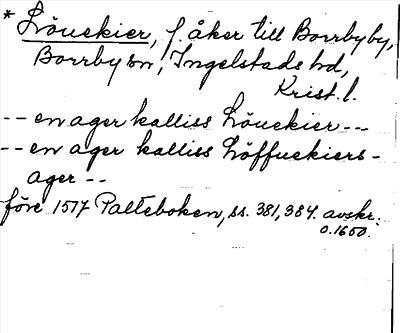 * Löuekier, f. åker till Borrby by,
Borrby sn, Ingelstads hd,
Krist. l.
-- en ager kalliss Löuekier --
-- en ager kalliss Löffuekiers-
ager --
före 1517 Palteboken, ss. 381, 384. avskr.
o. 1650.